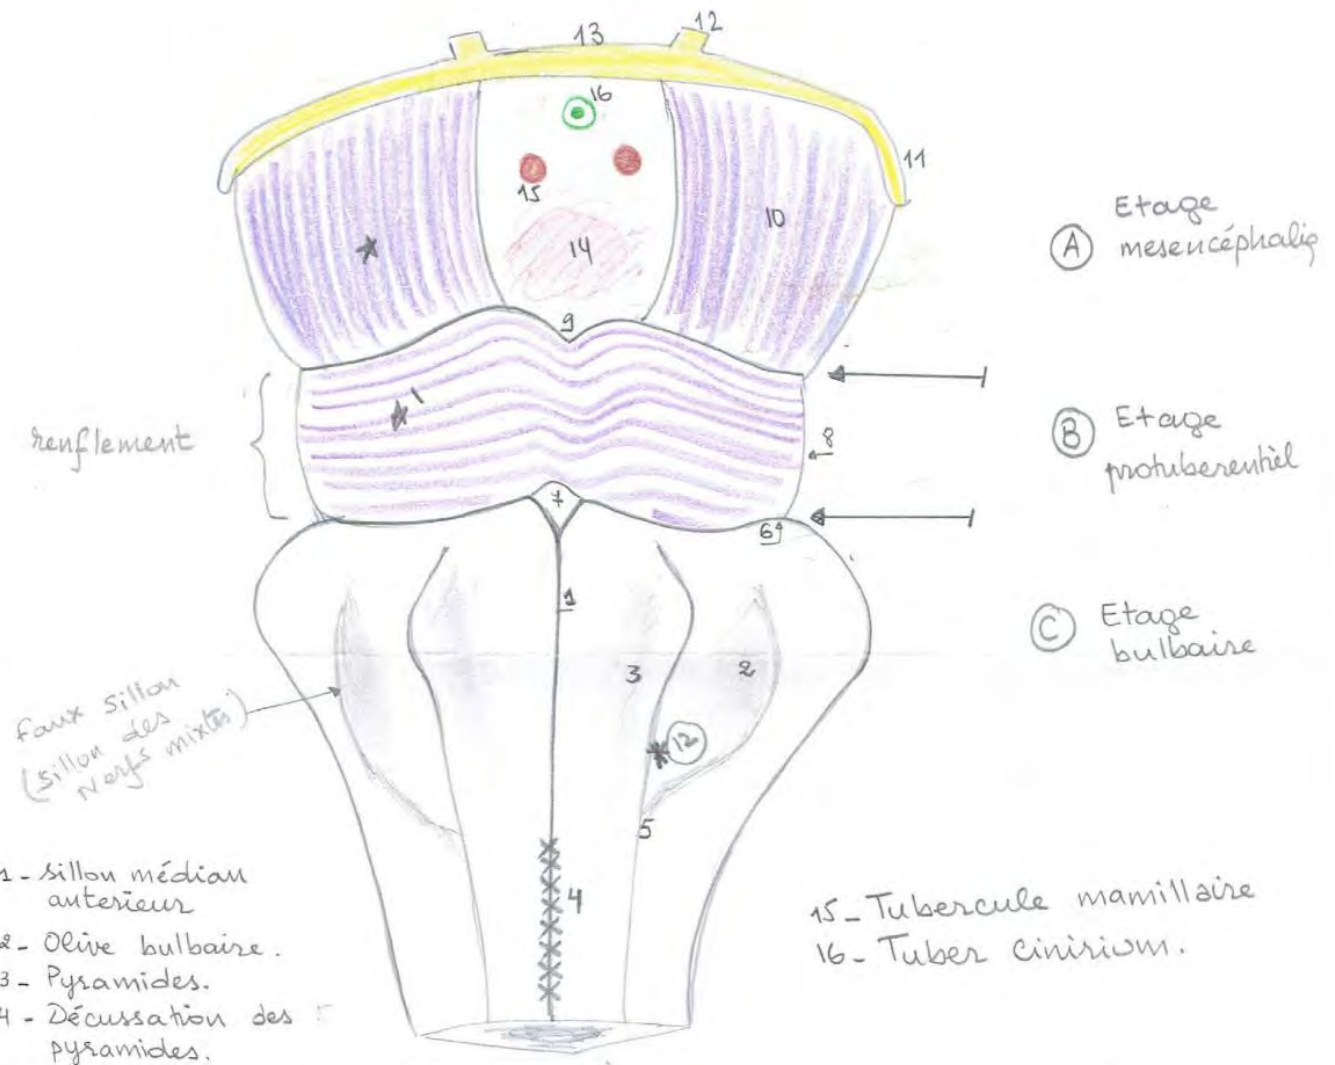 12
13
16
11
15
10
14
A Etage
mesencéphaliq
9
1
renflement
8
B Etage
protuberentiel
7
6
1
C Etage
bulbaire
3
2
faux sillon
(sillon des
Nerfs mixtes)
12
5
4
1 - sillon médian
anterieur
2 - Olive bulbaire.
3 - Pyramides.
4 - Décussation des
pyramides.
15 - Tubercule mamillaire
16 - Tuber cinirium.